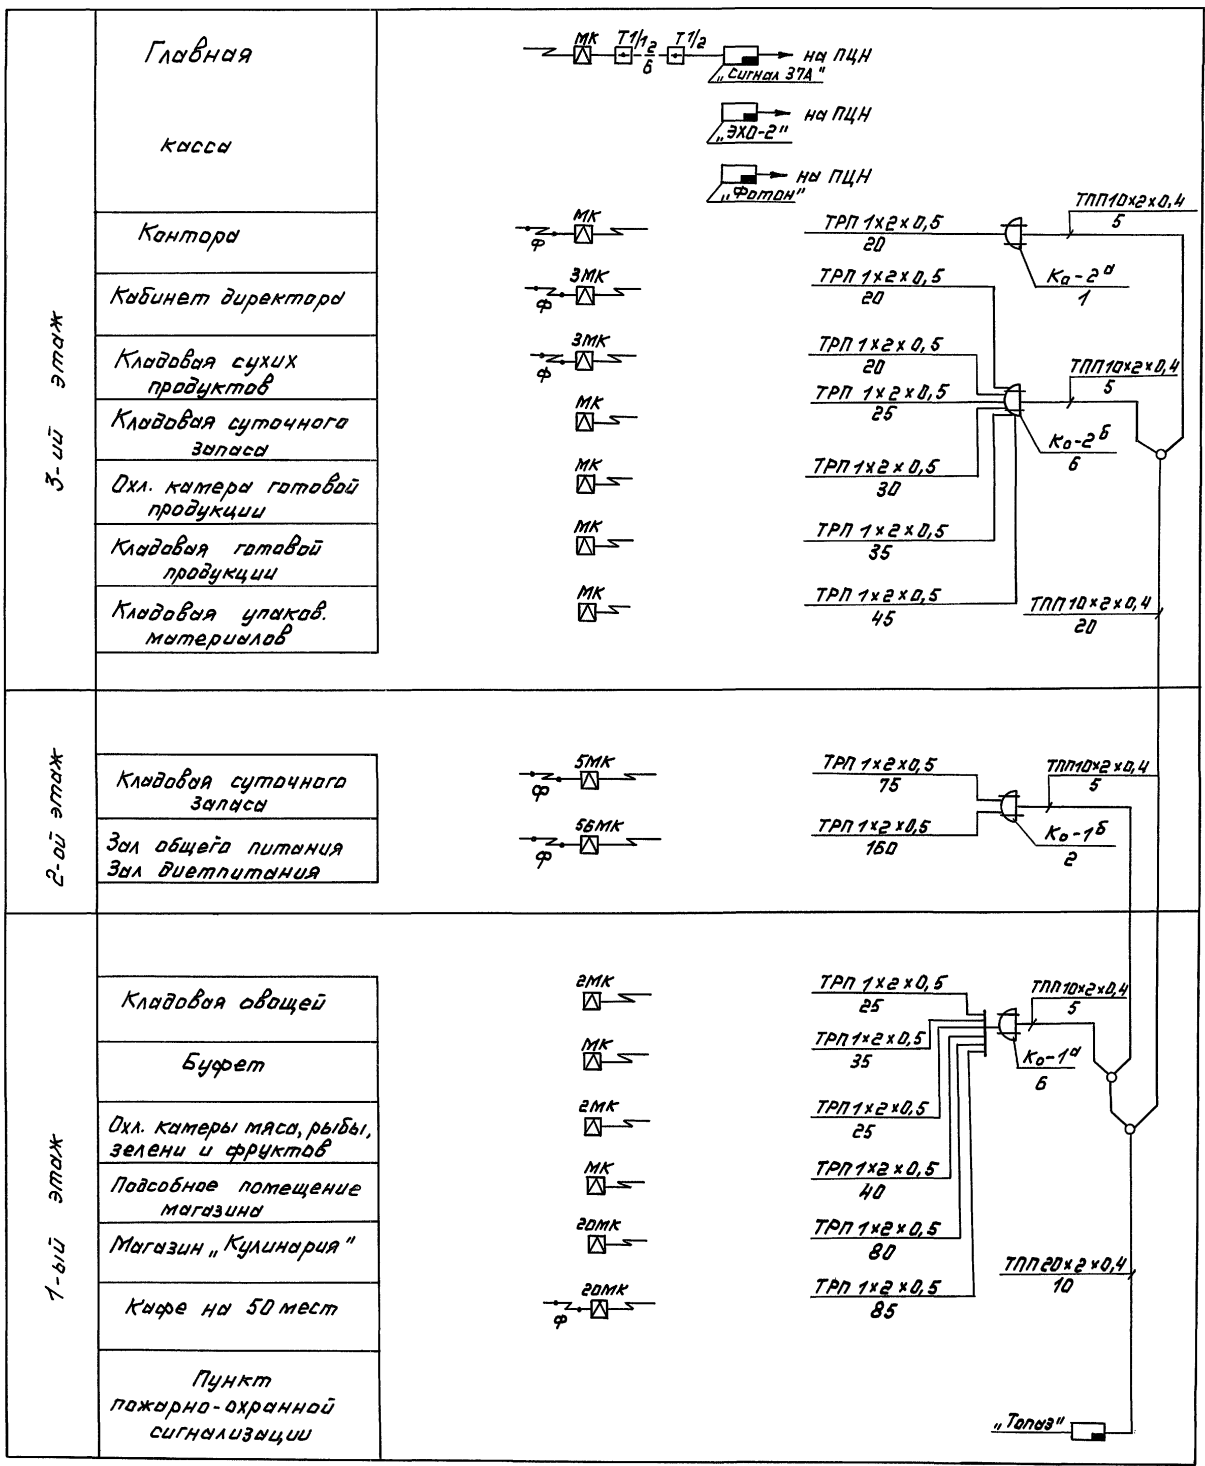 3-ий этаж
Главная
касса
МК Т1/12 Т1/2
6
на ПЦН
„Сигнал 37А"
на ПЦН
„ЭХО-2"
на ПЦН
„Фотон"
Контора
МК
Ф
ТРП 1×2×0,5
20
ТПП10×2×0,4
5
Ко-2а
1
Кабинет директора
3МК
Ф
ТРП 1×2×0,5
20
Кладовая сухих
продуктов
3МК
Ф
ТРП 1×2×0,5
20
ТПП10×2×0,4
5
Кладовая суточного
запаса
МК
ТРП 1×2×0,5
25
Ко-2б
6
Охл. камера готовой
продукции
МК
ТРП 1×2×0,5
30
Кладовая готовой
продукции
МК
ТРП 1×2×0,5
35
Кладовая упаков.
материалов
МК
ТРП 1×2×0,5
45
ТПП10×2×0,4
20
2-ой этаж
Кладовая суточного
запаса
5МК
Ф
ТРП 1×2×0,5
75
ТПП10×2×0,4
5
Зал общего питания
Зал диетпитания
56МК
Ф
ТРП 1×2×0,5
160
Ко-1б
2
1-ый этаж
Кладовая овощей
2МК
ТРП 1×2×0,5
25
ТПП10×2×0,4
5
Буфет
МК
ТРП 1×2×0,5
35
Ко-1а
6
Охл. камеры мяса, рыбы,
зелени и фруктов
2МК
ТРП 1×2×0,5
25
Подсобное помещение
магазина
МК
ТРП 1×2×0,5
40
Магазин „Кулинария"
20МК
ТРП 1×2×0,5
80
ТПП20×2×0,4
10
Кафе на 50 мест
20МК
Ф
ТРП 1×2×0,5
85
Пункт
пожарно-охранной
сигнализации
„Топаз"